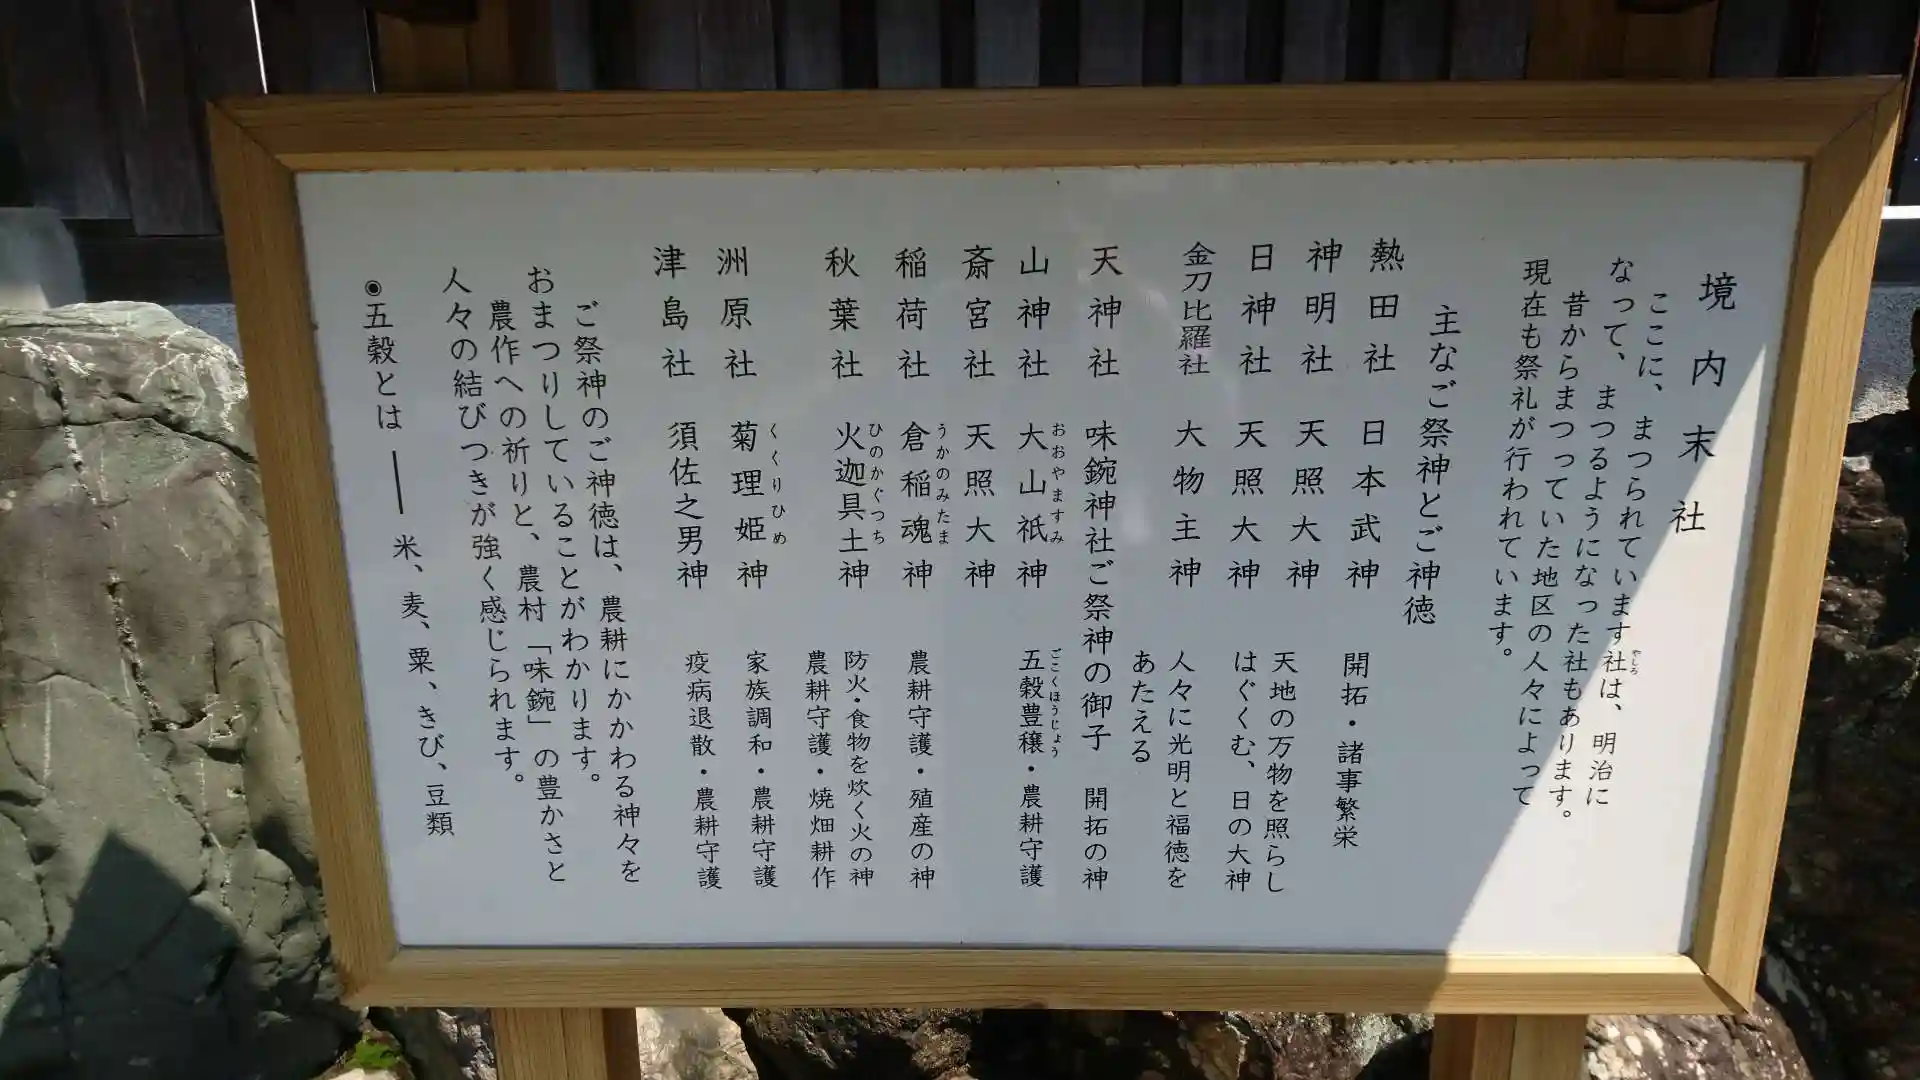 境内末社
ここに、まつられています社は、明治に
やしろ
なって、まつるようになった社もあります。
昔からまつっていた地区の人々によって
現在も祭礼が行われています。
主なご祭神とご神徳
熱田社 日本武神 開拓・諸事繁栄
神明社 天照大神 天地の万物を照らし
日神社 天照大神 はぐくむ、日の大神
金刀比羅社 大物主神 人々に光明と福徳を
あたえる
天神社 味鋺神社ご祭神の御子 開拓の神
山神社 大山祇神 五穀豊穣・農耕守護
おおやますみ ごこくほうじょう
斎宮社 天照大神
稲荷社 倉稲魂神 農耕守護・殖産の神
うかのみたま
秋葉社 火迦具土神 防火・食物を炊く火の神
ひのかぐつち
農耕守護・焼畑耕作
洲原社 菊理姫神 家族調和・農耕守護
くくりひめ
津島社 須佐之男神 疫病退散・農耕守護
ご祭神のご神徳は、農耕にかかわる神々を
おまつりしていることがわかります。
農作への祈りと、農村「味鋺」の豊かさと
人々の結びつきが強く感じられます。
◉五穀とは━━米、麦、粟、きび、豆類